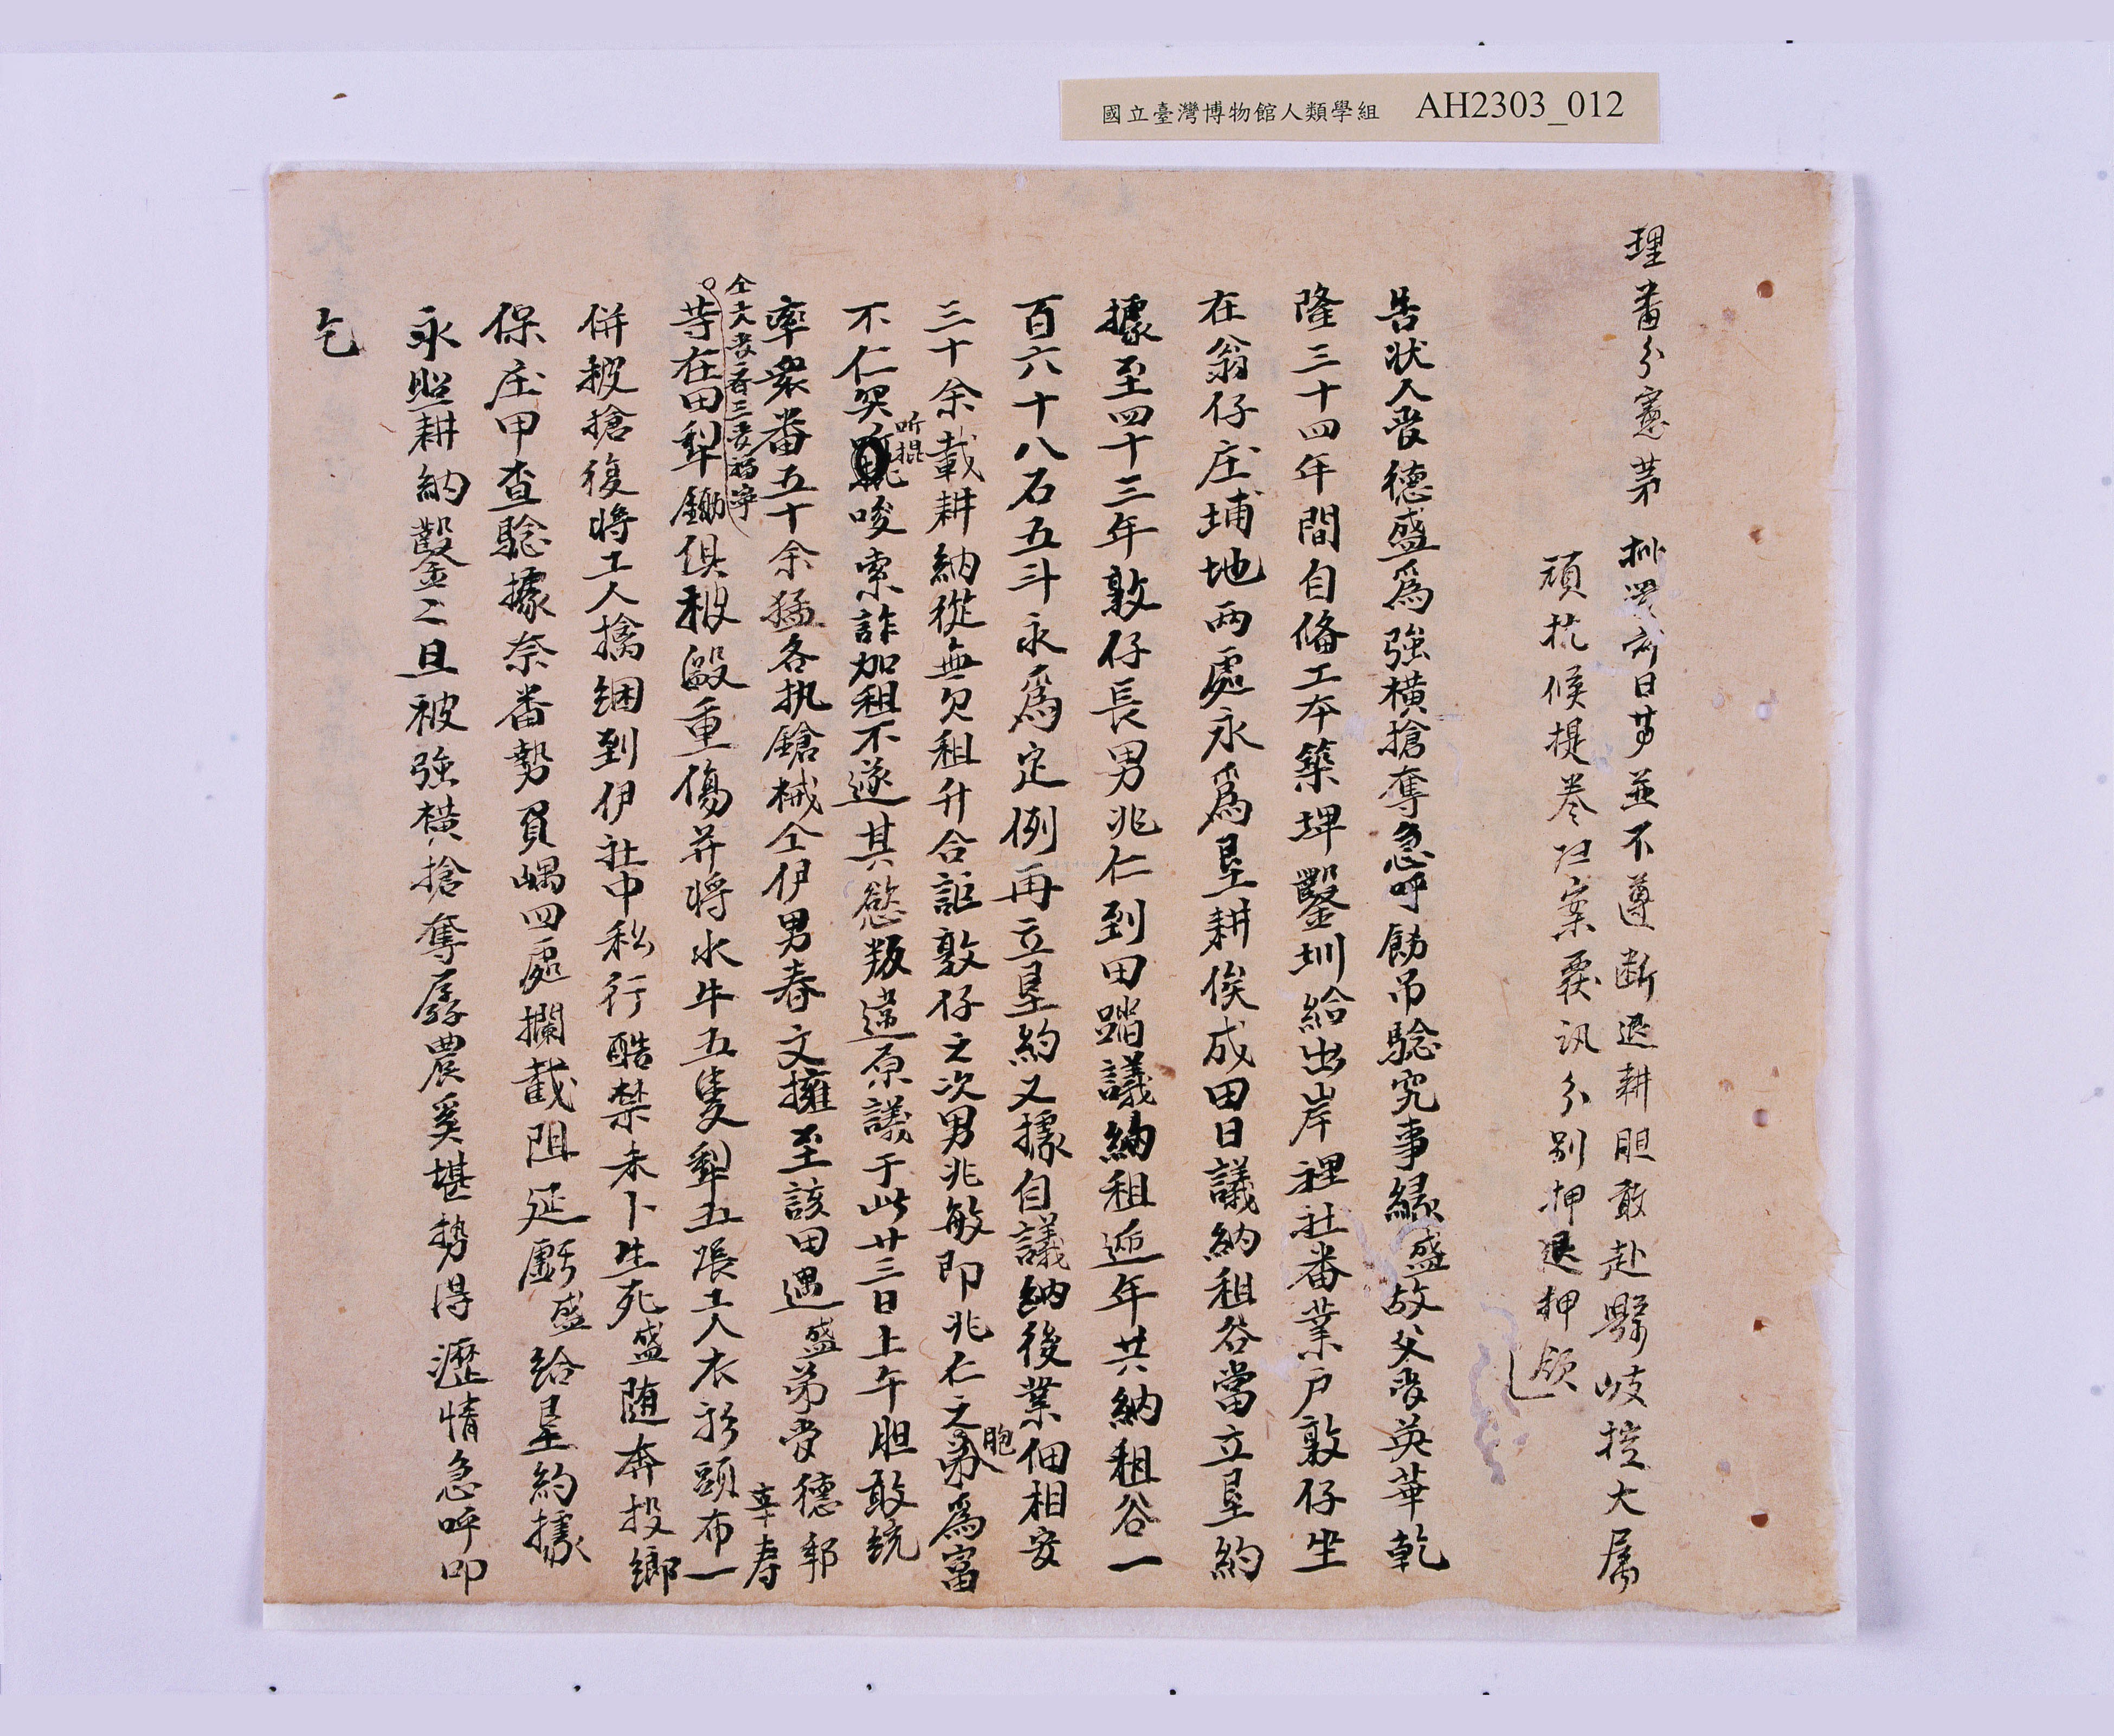 國立臺灣博物館人類學組 AH2303_012
理番分憲茅 批 前日 並不遵断退耕胆敢赴縣岐控大属
頑抗候提卷 案 訊分别押退押領
告状人 德盛為強橫搶奪急呼飭吊驗究事緣盛故父 英華乾
隆三十四年間自俻工本築埤鑿圳給出岸裡社番業户敦仔坐
在翁仔庄埔地両處永爲垦耕俟成田日議納租谷當立垦約
據至四十三年敦仔長男兆仁到田踏議納租逓年共納租谷一
百六十八石五斗永爲定例再立垦約又據自議納後業佃相安
三十余載耕納從無欠租升合詎敦仔之次男兆敏即兆仁之胞弟爲富
不仁突听棍 唆索詐加租不遂其慾叛違原議于此廿三日上午胆敢統
率衆番五十余猛各执鎗械仝伊男春文擁至該田遇盛弟 德郭
辛寿
仝大 三
等在田犁鋤俱被毆重傷并将水牛五隻犂五張工人衣衫頭布一
併被搶復将工人擒綑到伊社中私行酷禁未卜生死盛随奔投鄉
保庄甲查驗據奈番勢負嵎四處攔截阻延虧盛給垦約據
永照耕納鑿二旦被強橫搶奪孱農奚堪勢得瀝情急呼叩
乞